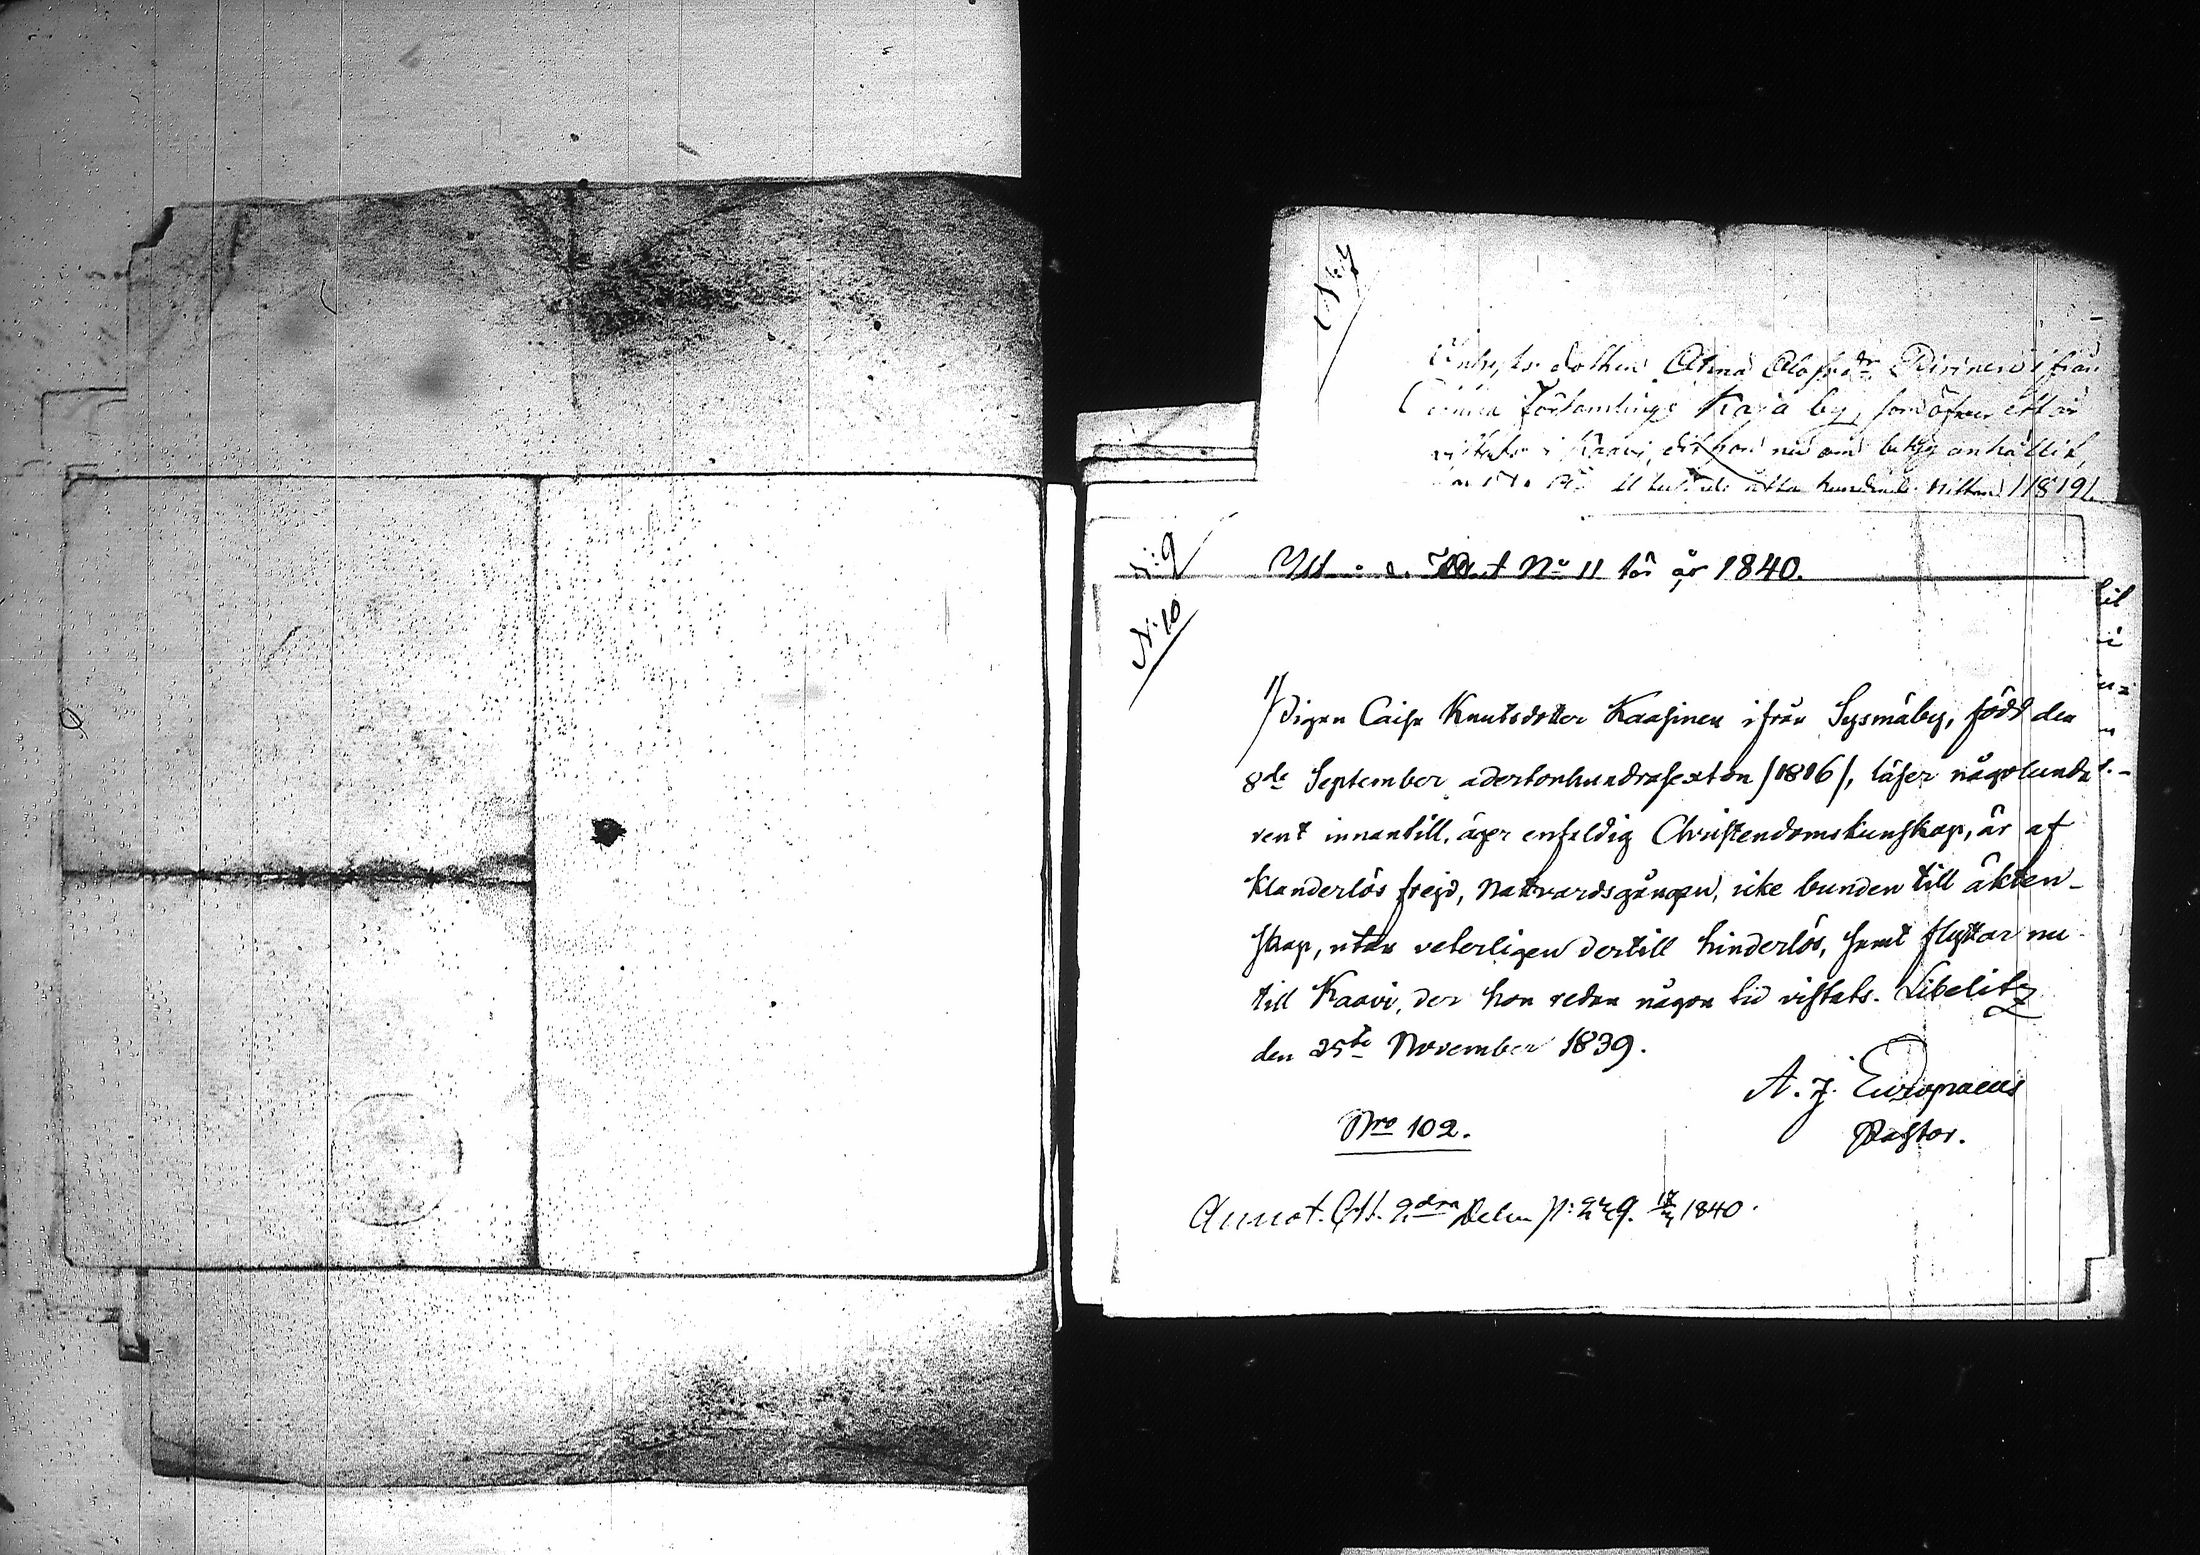 dotken Anna Olofsdr Piirinen ifrån
församlings Kaja by, som öfver ett år
i Kaavi, dit hon nu om betyg anhållit,
åtta hundrade nitton /1819/
N:9
Att N:o 11 för år 1840.
N:10
Pigan Caisa Knutsdotter Kaasinen ifrån Sysmäby, född den
8de September adertonhundrasexton /1816/, läser någorlunda
rent innantill, äger enfaldig Christendomskunskap, är af
klanderlös frejd, Nattvardsgången, icke bunden till äkten-
skap, utan veterligen dertill hinderlös, samt flyttar nu
till Kaavi, der hon redan någon tid vistats. Libelitz
den 25te November 1839.
A. J. Europaeus
Pastor.
Nro 102.
Annot. Att. 2dra Delen p: 249. 1840.